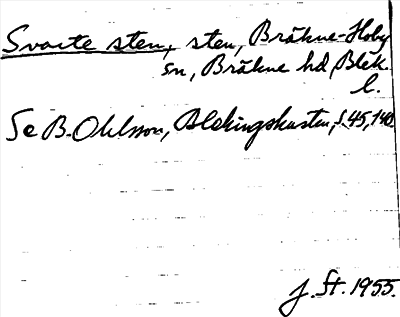 Svarte sten, sten, Bräkne-Hoby
sn, Bräkne hd, Blek.
l.
Se B. Ohlsson, Blekingskusten, s. 45, 140
J. St. 1955.